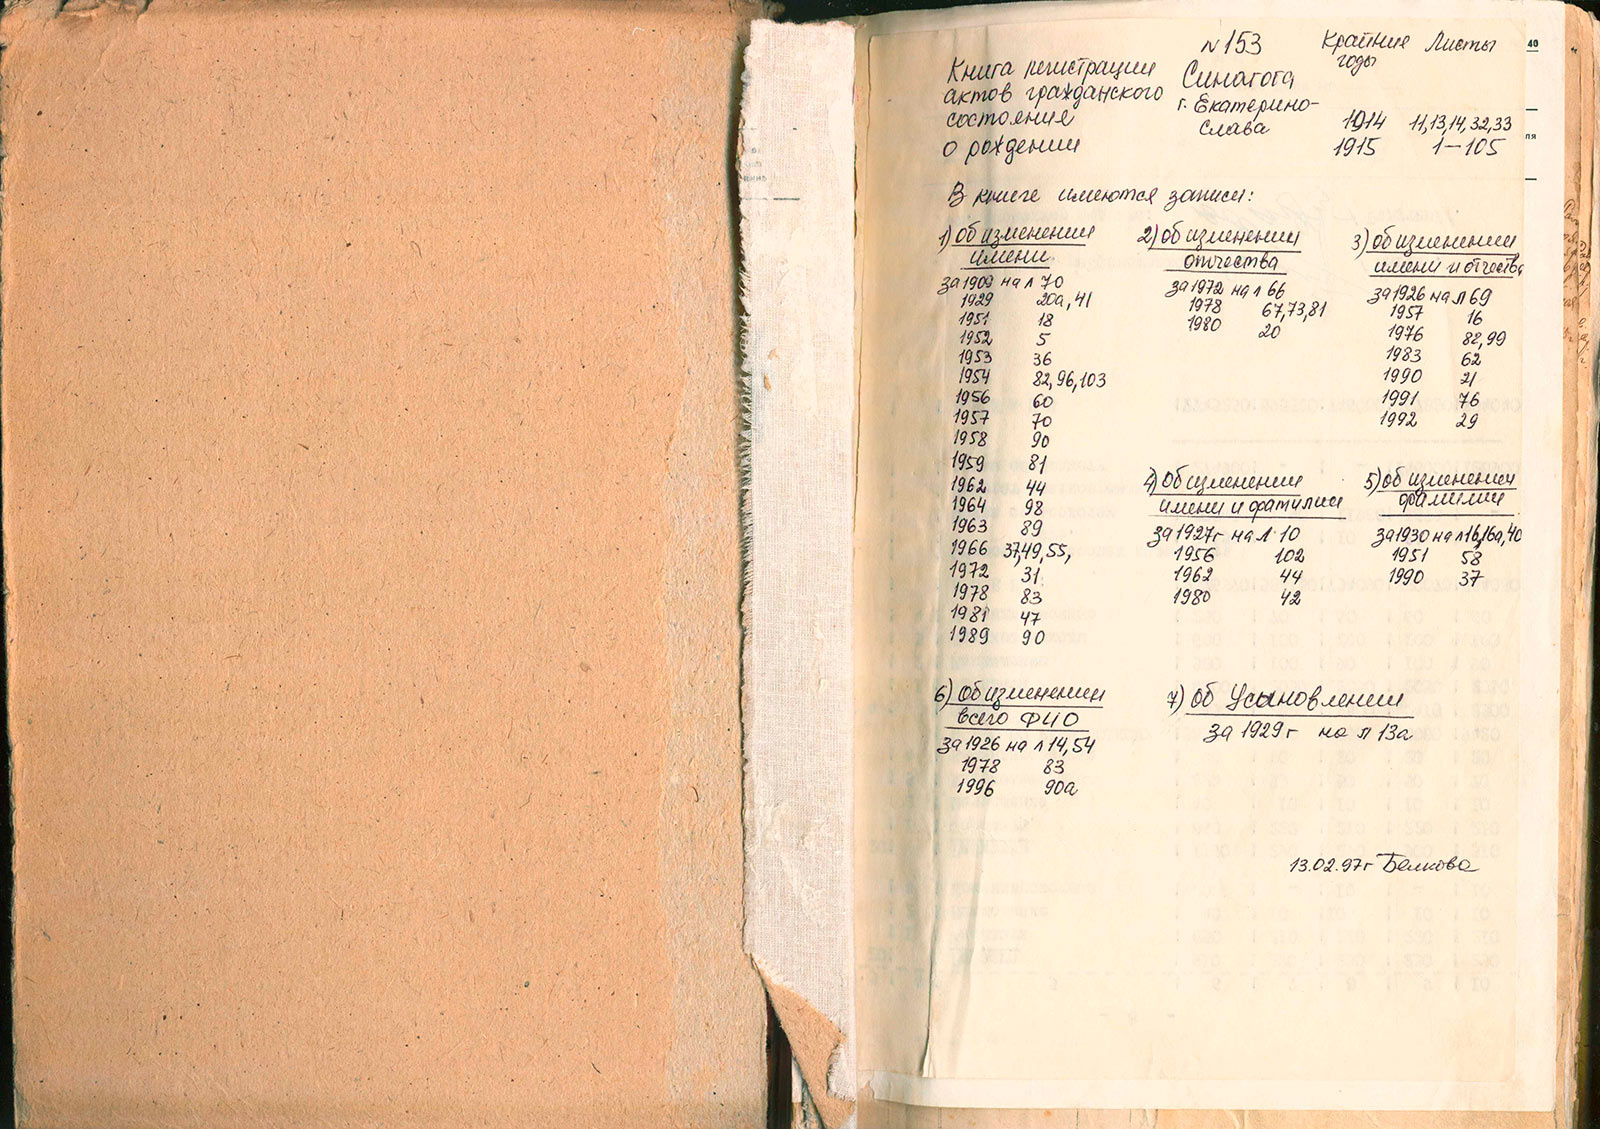 N 153
Крайние годы
Листы
Книга регистрации
актов гражданского
состояния
о рождении
Синагога
г. Екатерино-
слава
1914 11,13,14,32,33
1915 1-105
В книге имеются записи:
1) Об изменении
имени
за 1909 на л 70
1929 20а,41
1951 18
1952 5
1953 36
1954 82,96,103
1956 60
1957 70
1958 90
1959 81
1962 44
1964 98
1963 89
1966 37,49,55,
1972 31
1978 83
1981 47
1989 90
2) Об изменении
отчества
за 1972 на л 66
1978 67,73,81
1980 20
3) Об изменении
имени и отчества
за 1926 на л 69
1957 16
1976 82,99
1983 62
1990 21
1991 76
1992 29
4) Об изменении
имени и фамилии
за 1927г на л 10
1956 102
1962 44
1980 42
5) об изменении
фамилии
за 1930 на л 16,16а,40
1951 58
1990 37
6) Об изменении
всего ФИО
за 1926 на л 14,54
1978 83
1996 90а
7) Об Усыновлении
за 1929 г на л 13а
13.02.97г Белкова
40